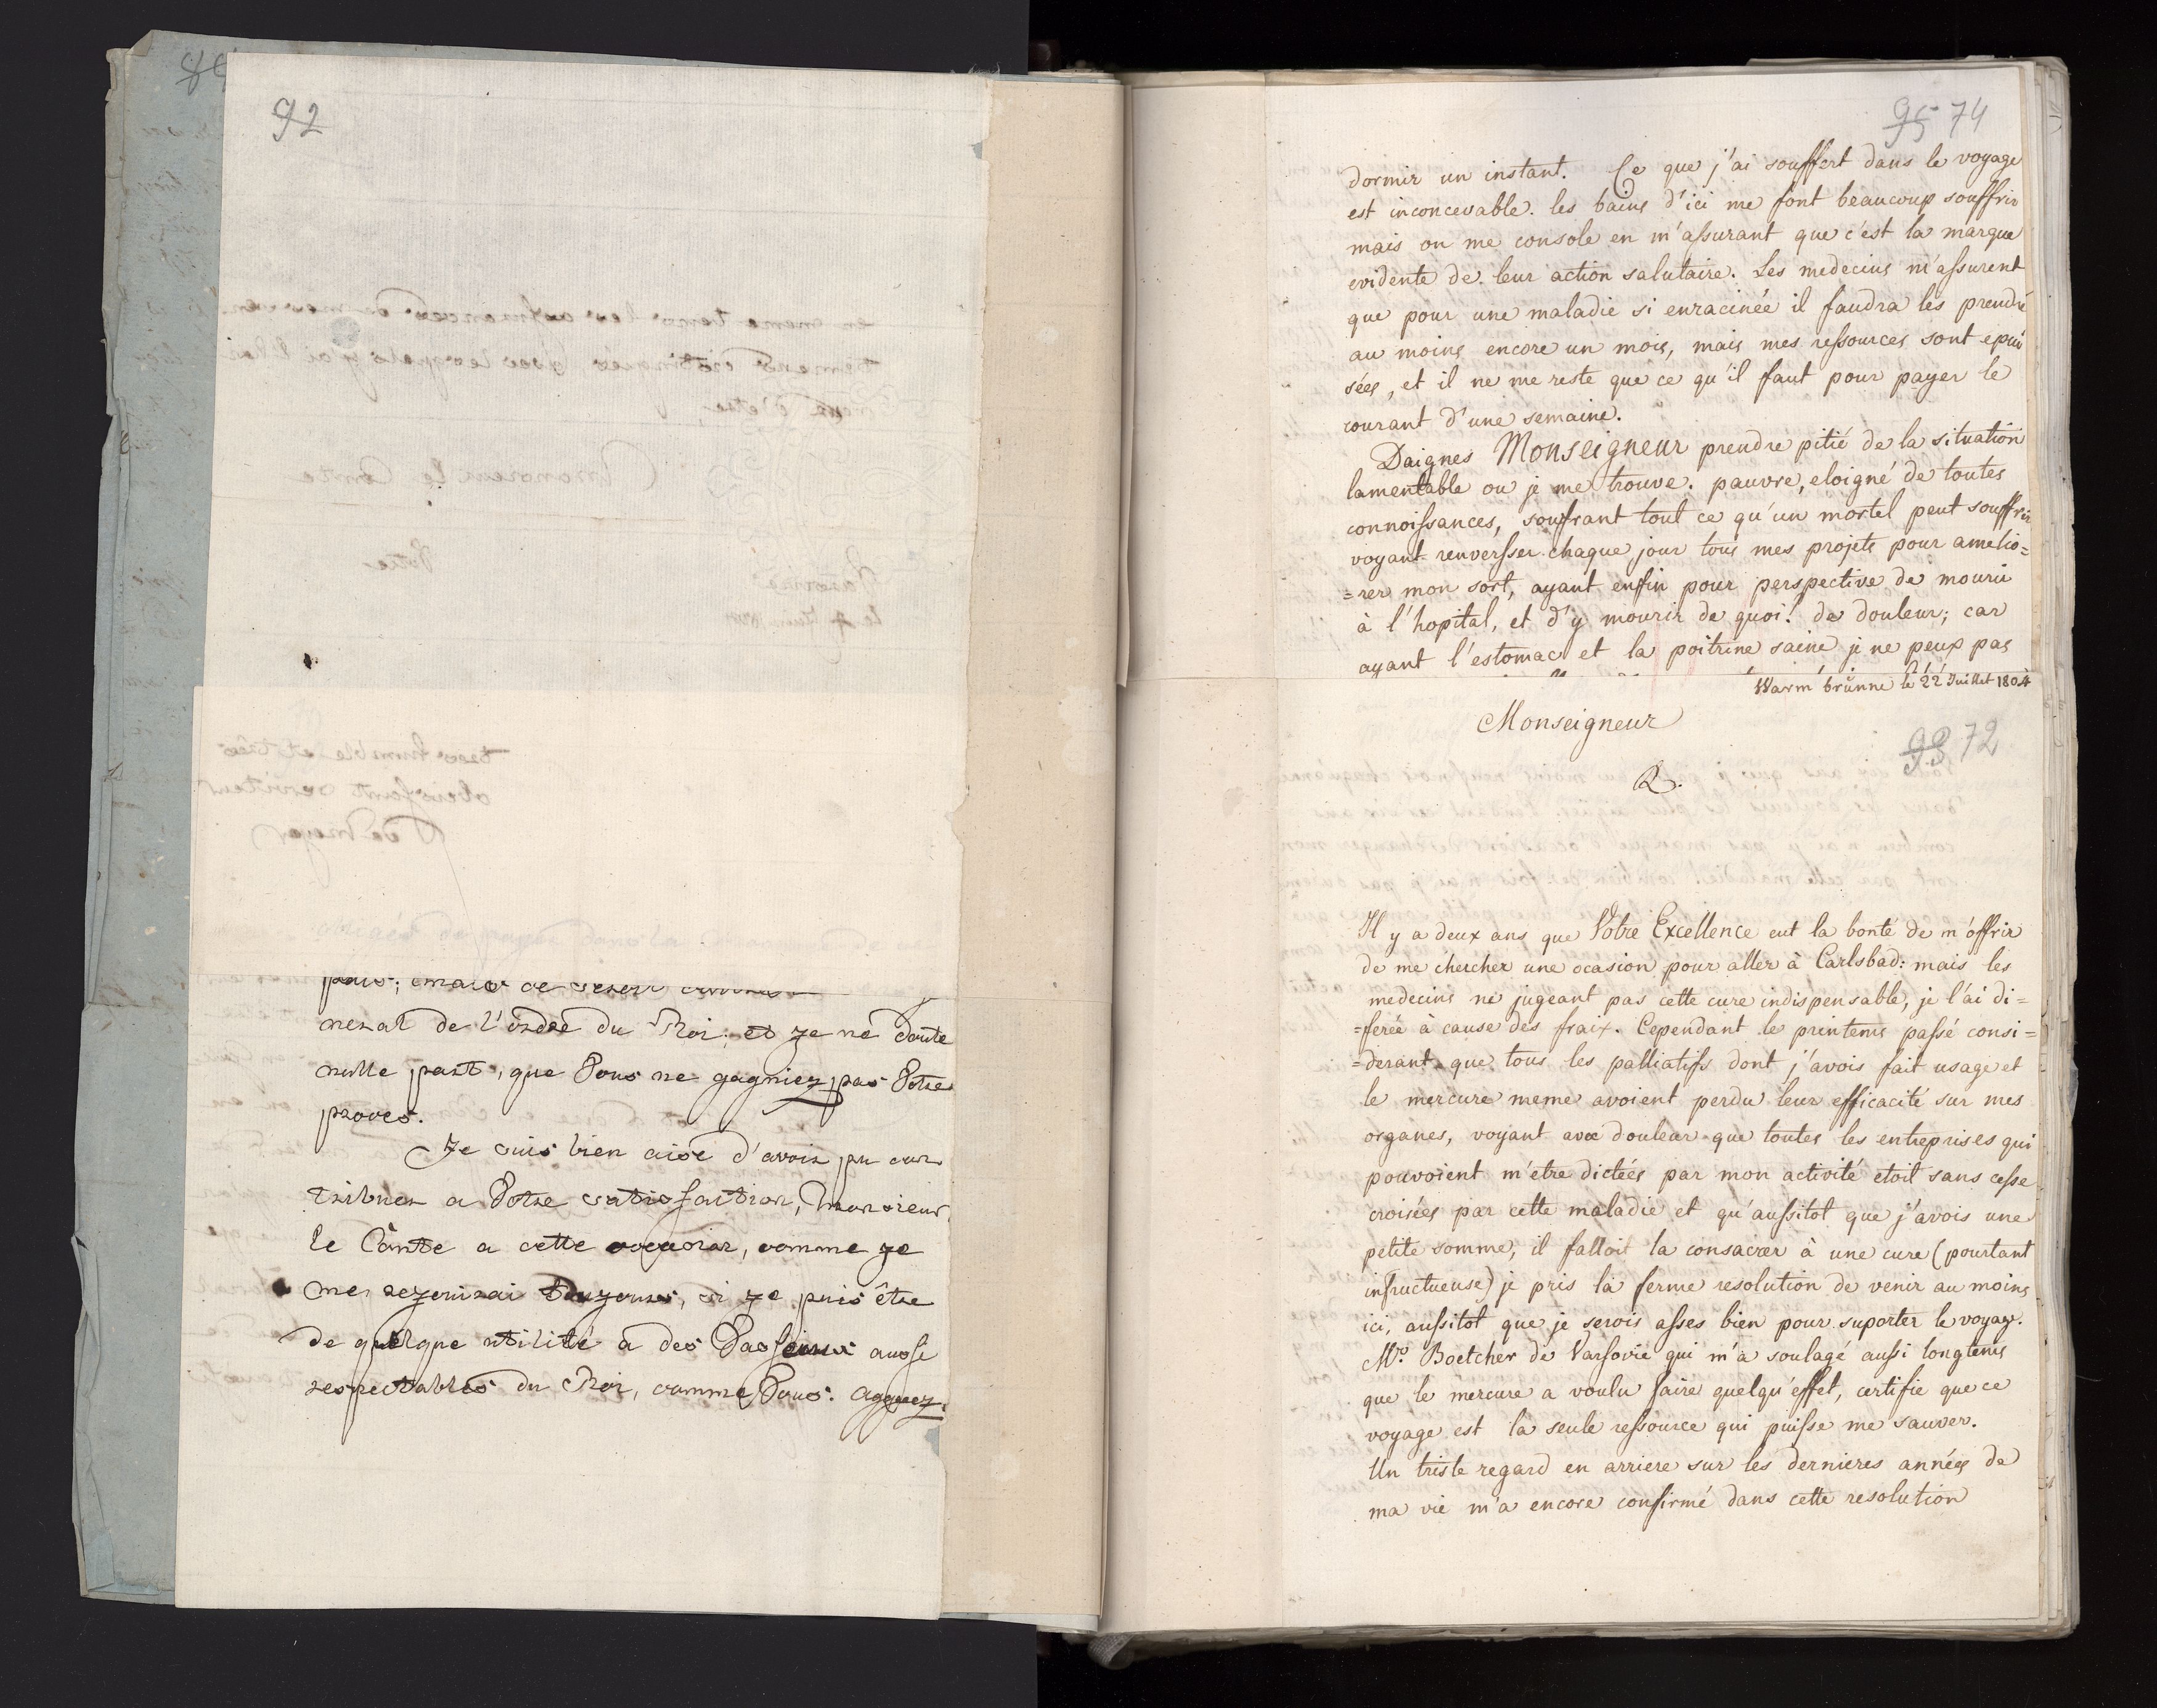 92
nerat de l'ordre du Roi; et je ne doute
nulle part, que Vous ne gagniez pas Votre
proces.
Je suis bien aise d'avoir pu con
tribuer a Votre satisfaction, Monsieur
le Comte a cette occasion, comme je
me rejouirai toujours, si je puis être
de quelque utilité a des Vasseaux ausse
respectables du Roi, comme Vous. agreez
95 74
dormir un instant. Ce que j'ai souffert dans le voyage
est inconcevable. les bains d'ici me font beaucoup souffrir
mais on me console en m'assurant que c'est la marque
evidente de leur action salutaire. Les medecins m'assurent
que pour une maladie si enracinée il faudra les prendre
au moins encore un mois, mais mes ressources sont epui
sées, et il ne me reste que ce qu'il faut pour payer le
courant d'une semaine.
Daignes Monseigneur prendre pitié de la situation
lamentable ou je me trouve. pauvre, eloigné de toutes
connoissances, soufrant tout ce qu'un mortel peut souffrir
voyant renversser chaque jour tous mes projets pour amelio=
=rer mon sort, ayant enfin pour perspective de mourir
à l'hopital, et d'y mourir de quoi! de douleur; car
ayant l'estomac et la poitrine saine je ne peux pas
Warmbrünne le 22 Juillet 1804
Monseigneur
93 72
Il y a deux ans que Votre Excellence eut la bonté de m'offrir
de me chercher une ocasion pour aller à Carlsbad: mais les
medecins ne jugeant pas cette cure indispensable, je l'ai di=
=ferée à cause des fraix. Cependant le printems passé consi=
=derant que tous les palliatifs dont j'avois fait usage et
le mercure meme avoient perdu leur efficacité sur mes
organes, voyant avec douleur que toutes les entreprises qui
pouvoient m'etre dictées par mon activité etoit sans cesse
croisées par cette maladie et qu'aussitot que j'avois une
petite somme, il falloit la consacrer à une cure (pourtant
infructueuse) je pris la ferme resolution de venir au moins
ici, aussitot que je serois asses bien pour suporter le voyage.
Mr. Boetcher de Varsovie qui m'a soulagé aussi longtems
que le mercure a voulu faire quelqu'effet, certifie que ce
voyage est la seule ressource qui puisse me sauver.
Un triste regard en arriere sur les dernieres années de
ma vie m'a encore confirmé dans cette resolution